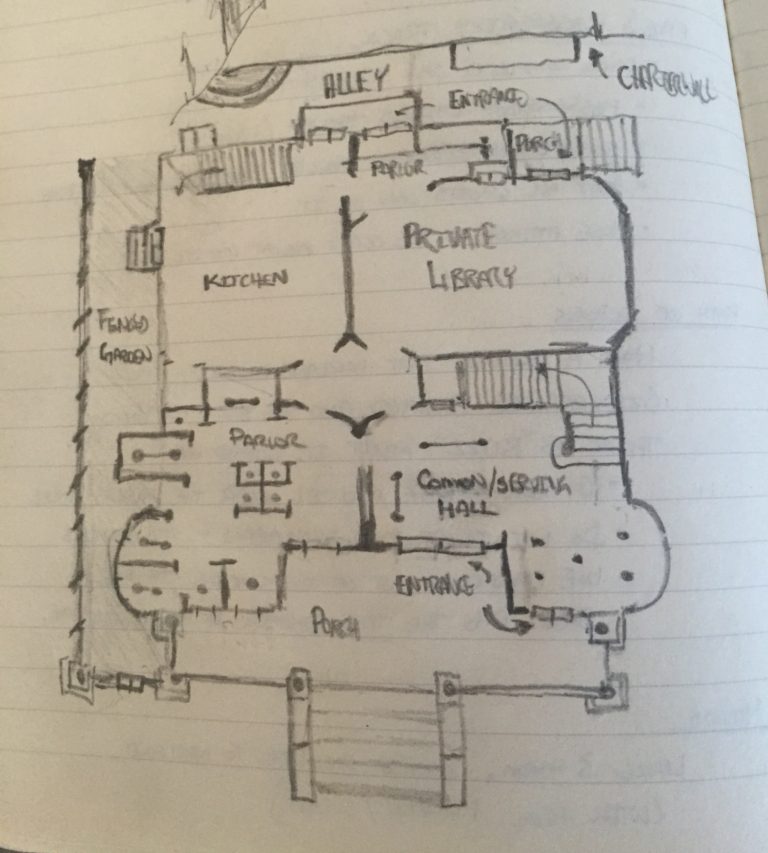 ALLEY
ENTRANCE
CHARTERWALL
PORCH
PARLOR
PRIVATE
LIBRARY
KITCHEN
FENCED
GARDEN
PARLOR
COMMON/SERVING
HALL
ENTRANCE
PORCH